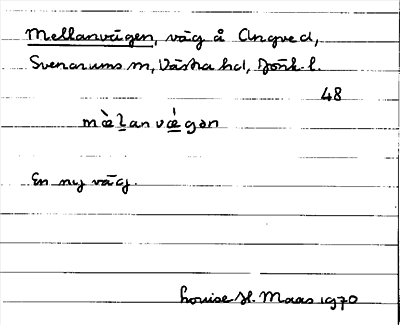 Mellanvägen, väg å Angved,
Svenarums sn, Västra hd, Jönk. l.
48
mèlan vé̱gən
En ny väg.
Louise H. Maas 1970